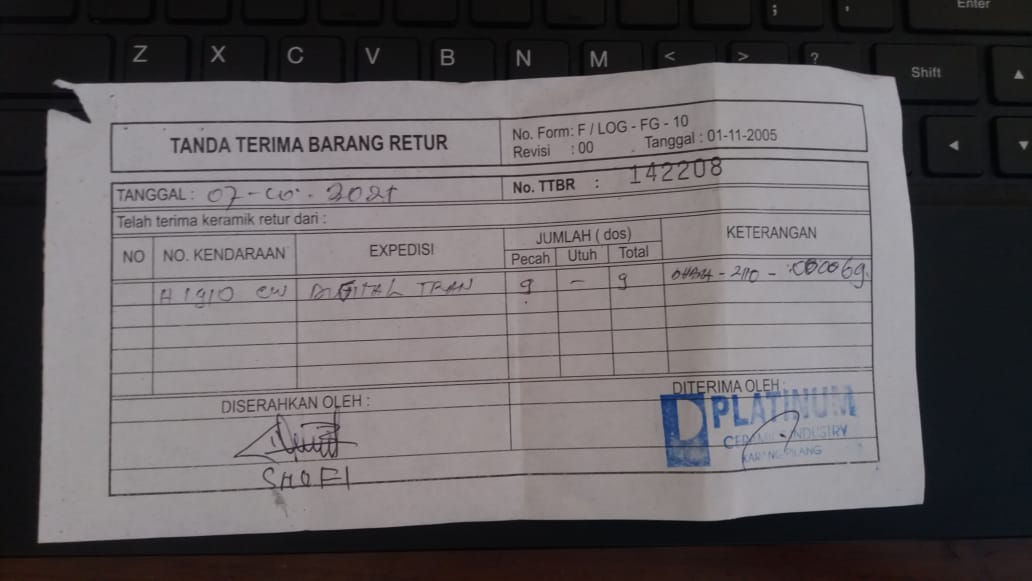 ; '
Enter
Z X C V B N M < > ? Shift
TANDA TERIMA BARANG RETUR
No. Form: F / LOG - FG - 10
Revisi : 00 Tanggal : 01-11-2005
TANGGAL : 07-10-2021
No. TTBR : 142208
Telah terima keramik retur dari :
NO NO. KENDARAAN EXPEDISI JUMLAH ( dos) KETERANGAN
Pecah Utuh Total
DIGITAL TRAN 9 - 9 - 2110 - 000069
DISERAHKAN OLEH :
DITERIMA OLEH :
PLATINUM
CERAMICS INDUSTRY
KARANG PILANG